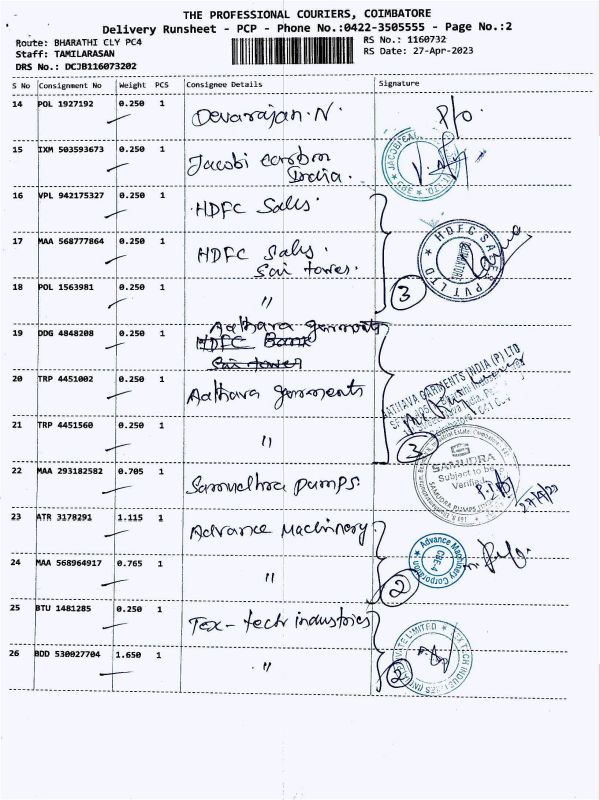 THE PROFESSIONAL COURIERS, COIMBATORE
Delivery Runsheet - PCP - Phone No.:0422-3505555 - Page No.:2
Route: BHARATHI CLY PC4 RS No.: 1160732
Staff: TAMILARASAN RS Date: 27-Apr-2023
DRS No.: DCJB116073202
S No Consignment No Weight PCS Consignee Details Signature
14 POL 1927192 0.250 1 Devarajan.N. P/o.
15 IXM 503593673 0.250 1 Jacobi carbon
India.
16 VPL 942175327 0.250 1 HDFC Sales.
17 MAA 568777864 0.250 1 HDFC Sales.
Sai tower.
HDFC SALES PVT LTD
18 POL 1563981 0.250 1 "
3
Aathava garments
19 DDG 4848208 0.250 1 HDFC Bank
Sai tower
20 TRP 4451002 0.250 1 Aathava garments
AATHAVA GARMENTS INDIA (P) LTD
21 TRP 4451560 0.250 1 "
3
22 MAA 293182582 0.705 1 Samudhra pumps.
SAMUDRA
Subject to be
SAMUDRA PUMPS
27/4/23
23 ATR 3178291 1.115 1 Advance Machinery
24 MAA 568964917 0.765 1 "
Advance Machinery Corporation
CBE-4
2
25 BTU 1481285 0.250 1 Tex-tech industries
26 BDD 530027704 1.650 1 "
2